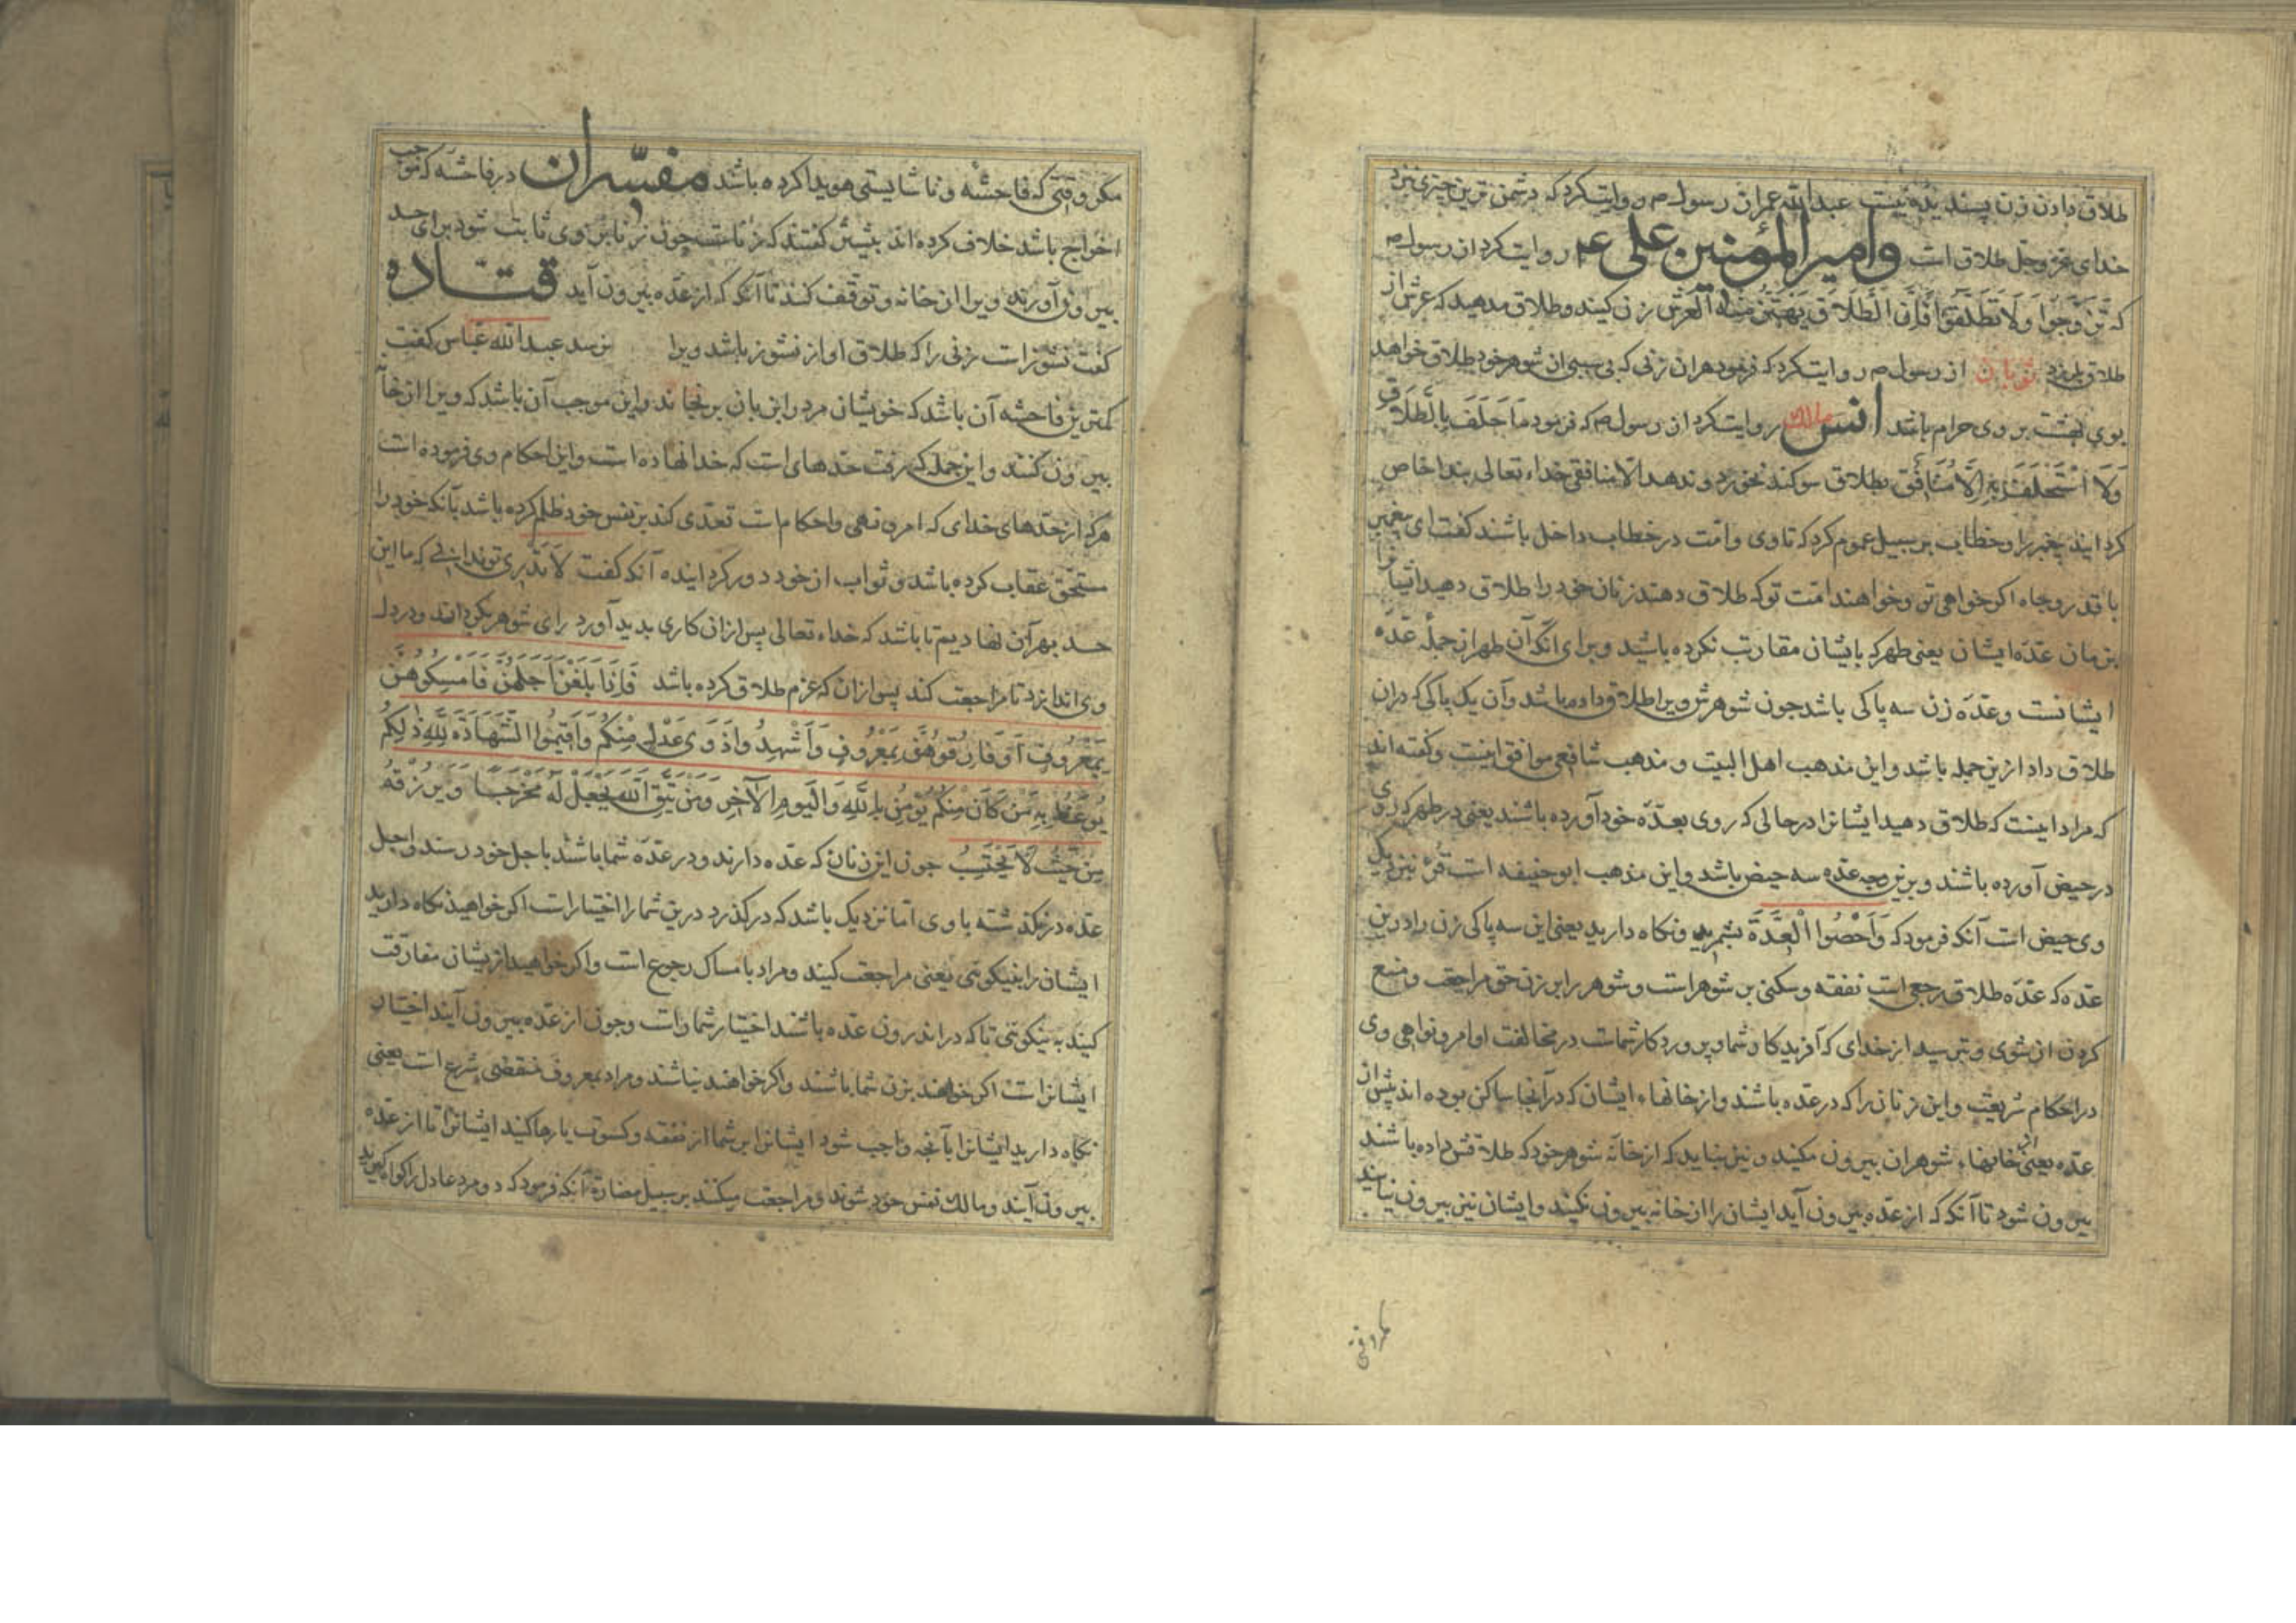 طلاق دادن زن پسندیده نیست عبدالله عمر از رسول م روایت کرد که دشمن ترین چیزی نزد
خدای عزوجل طلاق است وامیرالمؤمنین علی عم روایت کرد از رسول م
که تَزَوَّجُوا وَلَا تُطَلِّقُوا فَاِنَّ الطَّلَاقَ یَهْتَزُّ مِنْهُ الْعَرْشُ زن کنید و طلاق مدهید که عرش از
طلاق بلرزد ثوبان از رسول م روایت کرد که فرمود هر آن زنی که بی سببی از شوهر خود طلاق خواهد
بوی بهشت بر وی حرام باشد انس مالک روایت کرد از رسول م که فرمود مَا حَلَفَ بِالطَّلَاقِ
وَلَا اسْتَحْلَفَ بِهِ اِلَّا مُنَافِقٌ بطلاق سوکند نخورد و ندهد الا منافقی خداء تعالی ندا خاص
کردانید پیغمبر را و خطاب بر سبیل عموم کرد که تا وی و امت در خطاب داخل باشند کفت ای پیغمبر
با قدر و جاه اکر خواهی تو و خواهند امت تو که طلاق دهند زنان خود را طلاق دهید ایشانرا
بزمان عدّه ایشان یعنی طهر که بایشان مقاربت نکرده باشید و برای آنکه آن طهر از جملهٔ عدّه
ایشانست و عدّه زن سه پاکی باشد چون شوهرش ویرا طلاق داده باشد و آن یک پاکی که دران
طلاق داد ازین جمله باشد و این مذهب اهل البیت و مذهب شافعی موافق اینست و کفته اند
که مراد اینست که طلاق دهید ایشانرا در حالی که روی بعدّه خود آورده باشند یعنی در طهر که روی
در حیض آورده باشند و برین وجه عدّه سه حیض باشد و این مذهب ابوحنیفه است قرء نزدیک
وی حیض است آنکه فرمود که وَاَحْصُوا الْعِدَّةَ بشمرید و نکاه دارید یعنی این سه پاکی زن را درین
عدّه که عدّه طلاق رجعی است نفقه و سکنی بر شوهر است و شوهر را برین زن حق مراجعت و منع
کردن از شوی و بترسید از خدای که آفریدکار شما و پروردکار شماست در مخالفت اوامر و نواهی وی
در احکام شریعت و این زنان را که در عدّه باشند و از خانهاء ایشان که در آنجا ساکن بوده اند پیش از
عدّه یعنی از خانهاء شوهران بیرون مکنید و نیز نباید که از خانه شوهر خود که طلاقش داده باشند
بیرون شود تا آنکه که از عدّه بیرون آید ایشان را از خانه بیرون نکنید و ایشان نیز بیرون نیایند
مکر وقتی
مکر وقتی که فاحشه و ناشایستی هویدا کرده باشد مفسّران در فاحشه که موجب
اخراج باشد خلاف کرده اند بیشتر کفتند که زناست چون زنا بر وی ثابت شود برای حد
بیرون آورند ویرا از خانه و توقف کنند تا آنکه که از عدّه بیرون آید قتاده
کفت نشوز است زنی را که طلاق او از نشوز باشد ویرا نرسد عبدالله عباس کفت
کمترین فاحشه آن باشد که خویشان مرد را بزبان برنجاند و این موجب آن باشد که ویرا از خانه
بیرون کنند و این جمله که رفت حدّهای است که خدا نهاده است و این احکام وی فرموده است
هر که از حدّهای خدای که امر و نهی و احکام است تعدّی کند بر نفس خود ظلم کرده باشد بآنکه خود را
مستحق عقاب کرده باشد و ثواب از خود دور کردانیده آنکه کفت لَا تَدْرِی تو ندانی که ما این
حد بهر آن نهادیم تا باشد که خداء تعالی پس از آن کاری پدید آورد رای شوهر بکرداند و در دل
وی اندازد تا مراجعت کند پس از آن که عزم طلاق کرده باشد فَاِذَا بَلَغْنَ اَجَلَهُنَّ فَامْسِکُوهُنَّ
بِمَعْرُوفٍ اَوْ فَارِقُوهُنَّ بِمَعْرُوفٍ وَاَشْهِدُوا ذَوَی عَدْلٍ مِنْکُمْ وَاَقِیمُوا الشَّهَادَةَ لِلّٰهِ ذٰلِکُمْ
یُوعَظُ بِهِ مَنْ کَانَ مِنْکُمْ یُؤْمِنُ بِاللّٰهِ وَالْیَوْمِ الْآخِرِ وَمَنْ یَتَّقِ اللّٰهَ یَجْعَلْ لَهُ مَخْرَجًا وَیَرْزُقْهُ
مِنْ حَیْثُ لَا یَحْتَسِبُ چون این زنان که عدّه دارند و در عدّه شما باشند باجل خود رسند و اجل
عدّه درنکذشته باوی اما نزدیک باشد که درکذرد درین شما را اختیار است اکر خواهید نکاه دارید
ایشان را بنیکوئی یعنی مراجعت کنید و مراد بامساک رجوع است و اکر خواهید از یشان مفارقت
کنید به نیکوئی تا که در اندرون عدّه باشند اختیار شما راست و چون از عدّه بیرون آیند اختیار
ایشانراست اکر خواهند بزن شما باشند و اکر خواهند نباشند و مراد بمعروف مقتضی شرع است یعنی
نکاه دارید ایشانرا بآنچه واجب شود ایشانرا بر شما از نفقه و کسوت یا رها کنید ایشانرا تا از عدّه
بیرون آیند و مالک نفس خود شوند و مراجعت میکنند بر سبیل مضارّه آنکه فرمود که دو مرد عادل را کواه کیرید